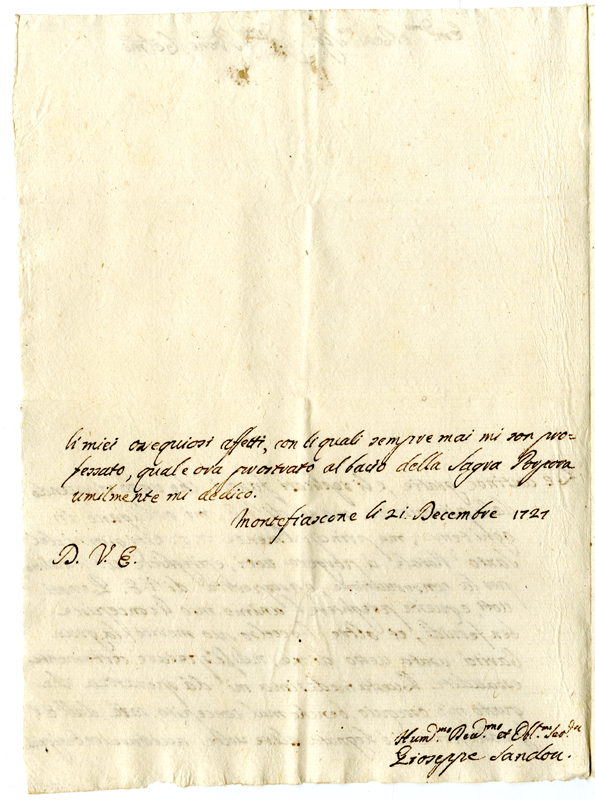 li miei ossequiosi affetti, con li quali sempre mai mi son pro=
fessato, quale ora prostrato al bacio della Sagra Porpora
umilmente mi dedico.
Montefiascone li 21. Decembre 1727
D. V. E.
Hum.mo Dev.mo et Obl.mo Ser.re
Gioseppe Sandou.